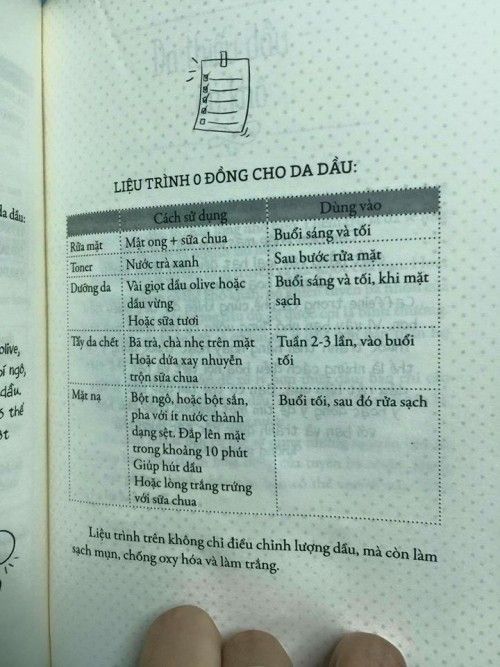 LIỆU TRÌNH 0 ĐỒNG CHO DA DẦU:
Cách sử dụng Dùng vào
Rửa mặt Mật ong + sữa chua Buổi sáng và tối
Toner Nước trà xanh Sau bước rửa mặt
Dưỡng da Vài giọt dầu olive hoặc Buổi sáng và tối, khi mặt
dầu vừng sạch
Hoặc sữa tươi
Tẩy da chết Bã trà, chà nhẹ trên mặt Tuần 2-3 lần, vào buổi
Hoặc dừa xay nhuyễn tối
trộn sữa chua
Mặt nạ Bột ngô, hoặc bột sắn, Buổi tối, sau đó rửa sạch
pha với ít nước thành
dạng sệt. Đắp lên mặt
trong khoảng 10 phút
Giúp hút dầu
Hoặc lòng trắng trứng
với sữa chua
Liệu trình trên không chỉ điều chỉnh lượng dầu, mà còn làm
sạch mụn, chống oxy hóa và làm trắng.
da dầu:
olive,
bí ngô,
dầu.
thể